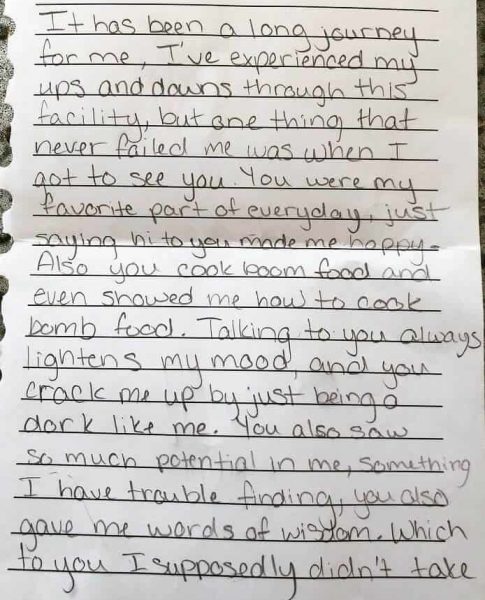 It has been a long journey
for me, I've experienced my
ups and downs through this
facility, but one thing that
never failed me was when I
got to see you. You were my
favorite part of everyday, just
saying hi to you made me happy.
Also you cook boom food and
even showed me how to cook
bomb food. Talking to you always
lightens my mood, and you
crack me up by just being a
dork like me. You also saw
so much potential in me, something
I have trouble finding, you also
gave me words of wisdom. Which
to you I supposedly didn't take